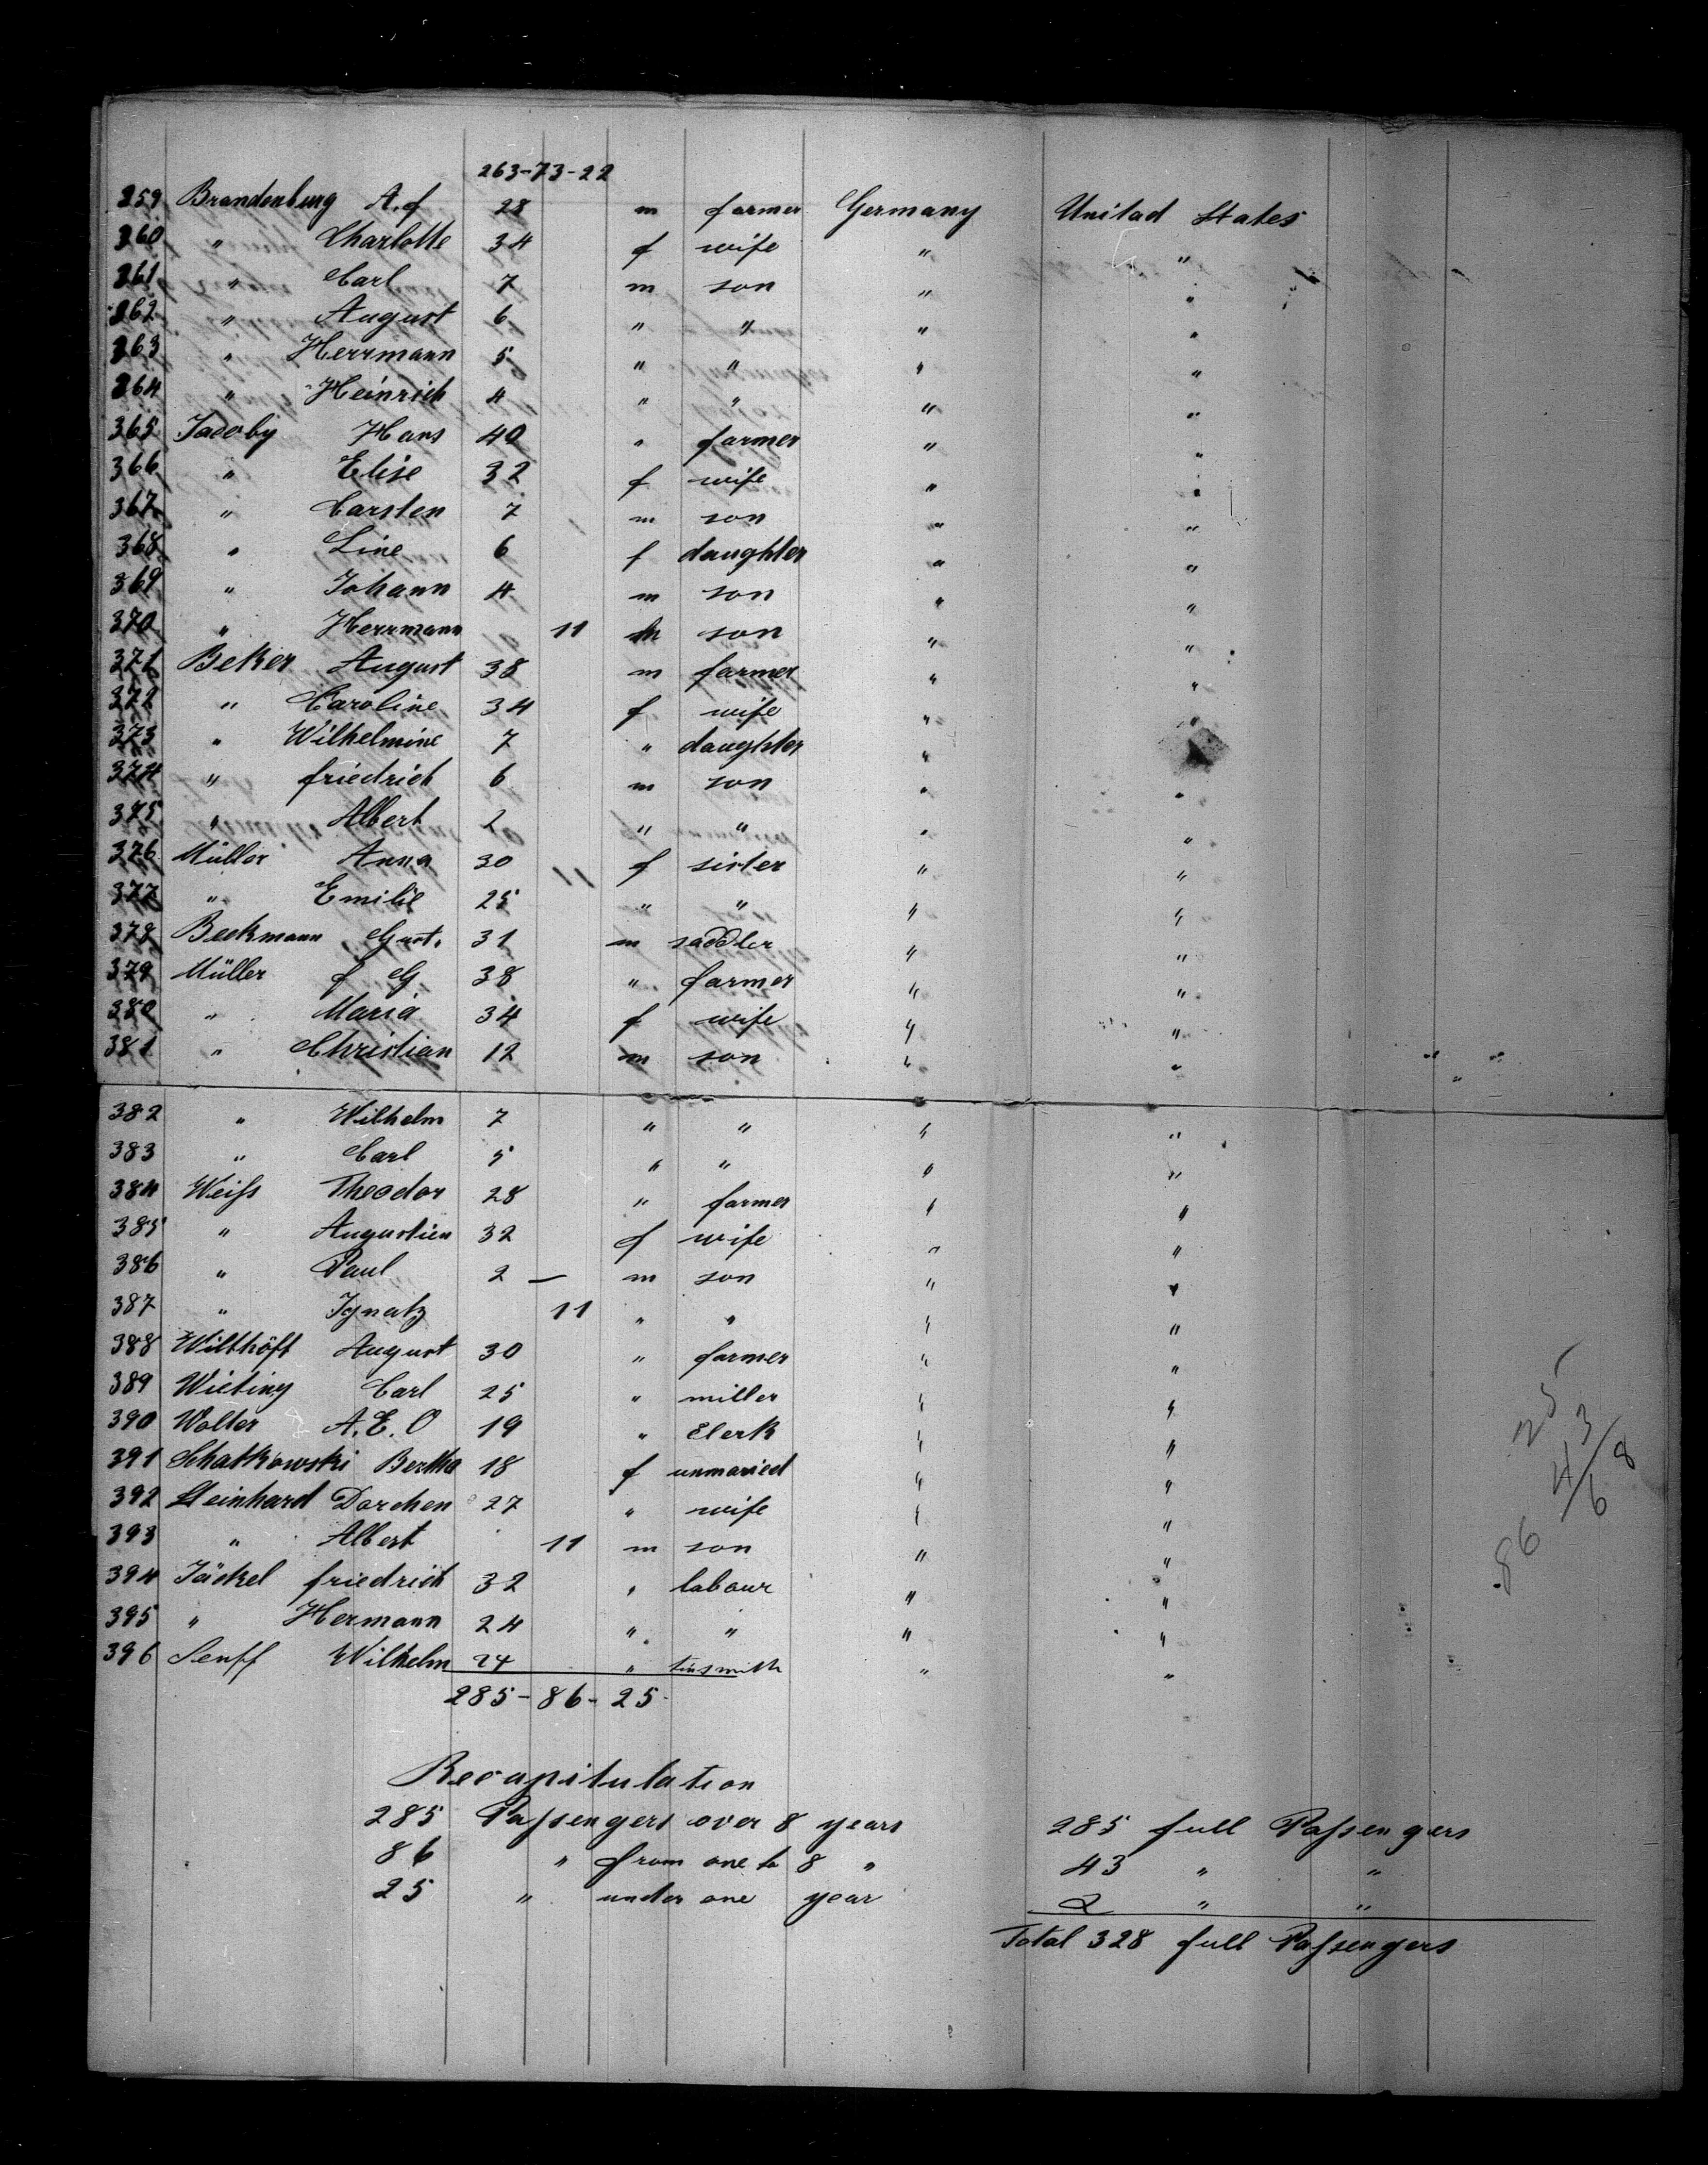 263-73-22
359 Brandenburg A. f 28 m farmer Germany Unitad States
360 " Charlotte 34 f wife " "
361 " Carl 7 m son " "
362 " August 6 " " " "
363 " Herrmann 5 " " " "
364 " Heinrich 4 " " " "
365 Jacoby Hans 40 " farmer " "
366 " Elise 32 f wife " "
367 " Carsten 7 m son " "
368 " Line 6 f daughter " "
369 " Johann 4 m son " "
370 " Herrmann 11 m son " "
371 Beker August 38 m farmer " "
372 " Caroline 34 f wife " "
373 " Wilhelmine 7 " daughter " "
374 " friedrich 6 m son " "
375 " Albert 2 " " " "
376 Müller Anna 30 f sister " "
377 " Emilie 25 " " " "
378 Beckmann Gust. 31 m saddler " "
379 Müller f G 38 " farmer " "
380 " Maria 34 f wife " "
381 " Christian 12 m son " "
382 " Wilhelm 7 " " " "
383 " Carl 5 " " " "
384 Weiſs Theodor 28 " farmer " "
385 " Augustien 32 f wife " "
386 " Paul 2 — m son " "
387 " Ignatz 11 " " " "
388 Wilthöft August 30 " farmer " "
389 Wieting Carl 25 " miller " "
390 Wolter A. E. O 19 " Clerk " "
391 Schatkowski Bertha 18 f unmaried " "
392 Steinhard Dorchen 27 " wife " "
393 " Albert 11 m son " "
394 Jäckel friedrich 32 " labour " "
395 " Hermann 24 " " " "
396 Senff Wilhelm 24 " tinsmith " "
285-86-25
25
43/68
86
Recapitulation
285 Paſsengers over 8 years 285 full Paſsengers
86 " from one to 8 " 43 " "
25 " under one year " "
Total 328 full Paſsengers